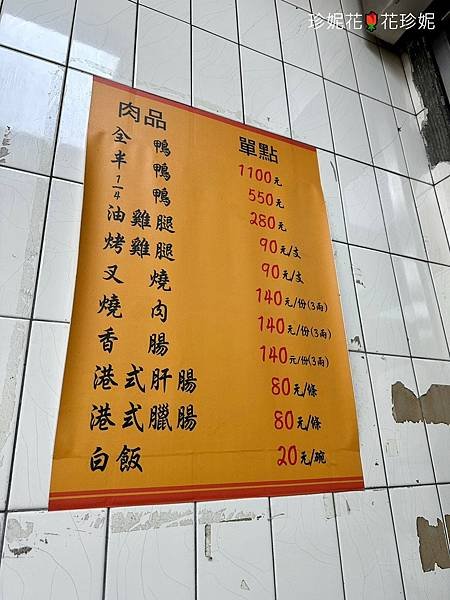 珍妮花🌹花珍妮
肉品 單點
全鴨 1100元
半鴨 550元
1/4鴨 280元
油雞腿 90元/支
烤雞腿 90元/支
叉燒 140元/份(3兩)
燒肉 140元/份(3兩)
香腸 140元/份(3兩)
港式肝腸 80元/條
港式臘腸 80元/條
白飯 20元/碗